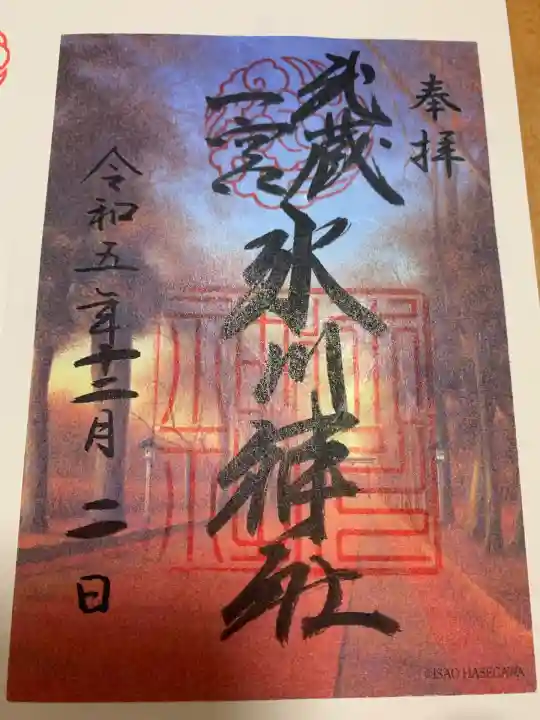 奉拝
武蔵
一宮
氷川神社
令和五年十二月二日
©ISAO HASEGAWA